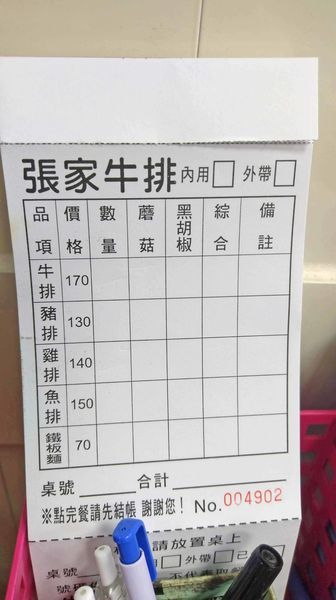 張家牛排 內用□ 外帶□
品項 價格 數量 蘑菇 黑胡椒 綜合 備註
牛排 170
豬排 130
雞排 140
魚排 150
鐵板麵 70
桌號 合計
※點完餐請先結帳 謝謝您! No.004902
請放置桌上
桌號 外帶□
不代表